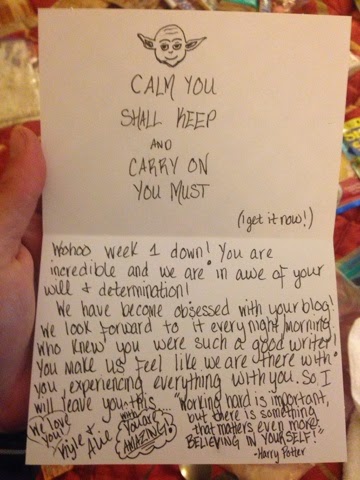 CALM YOU
SHALL KEEP
AND
CARRY ON
YOU MUST
(i get it now!)
Wohoo week 1 down! You are
incredible and we are in awe of your
will & determination!
We have become obsessed with your blog!
We look forward to it every night/morning.
Who knew you were such a good writer!
You make us feel like we are there with
you experiencing everything with you. So I
will leave you this
with
"Working hard is important,
but there is something
that matters even more:
BELIEVING IN YOURSELF!"
-Harry Potter
You are
AMAZING!
We love
you!
& Alie